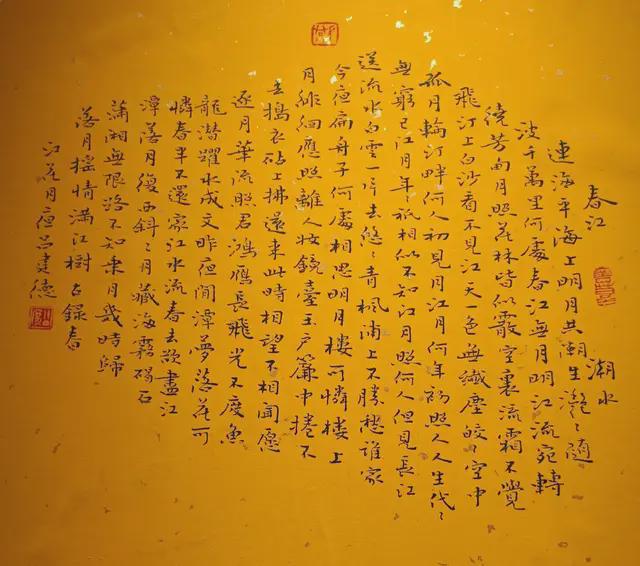 春江潮水
連海平海上明月共潮生灩〻隨
波千萬里何處春江無月明江流宛轉
繞芳甸月照花林皆似霰空裏流霜不覺
飛汀上白沙看不見江天一色無纖塵皎〻空中
孤月輪江畔何人初見月江月何年初照人人生代〻
無窮已江月年〻祇相似不知江月照何人但見長江
送流水白雲一片去悠〻青楓浦上不勝愁誰家
今夜扁舟子何處相思明月樓可憐樓上
月徘徊應照離人妝鏡臺玉戶簾中捲不
去搗衣砧上拂還來此時相望不相聞願
逐月華流照君鴻雁長飛光不度魚
龍潛躍水成文昨夜閒潭夢落花可
憐春半不還家江水流春去欲盡江
潭落月復西斜〻月藏海霧碣石
瀟湘無限路不知乘月幾時歸
落月摇情滿江樹右錄春
江花月夜呂建德